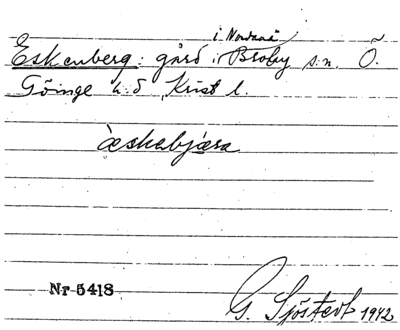 i Nordanå
Eskenberg: gård i Broby s:n. Ö.
Göinge h:d Krist l.
àeskabjæra
Nr 5418
G. Sjöstedt 1942